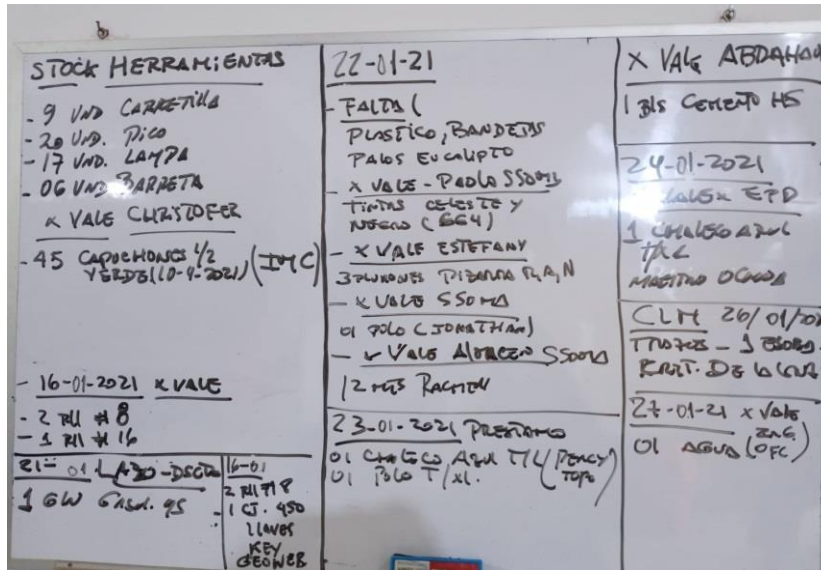 STOCK HERRAMIENTAS
- 9 UND CARRETILLA
- 20 UND. PICO
- 17 UND. LAMPA
- 06 UND BARRETA
X VALE CHRISTOFER
- 45 CAPUCHONES 1/2
VERDE (10-9-2021) (IMC)
- 16-01-2021 X VALE
- 2 RLL # 8
- 1 RLL # 16
21-01 LAZO-DSCTO
1 GLN GASOL. 95
16-01
2 RLL # 8
1 CJ. 450
LLAVES
KEY
GEOWEB
22-01-21
- FALTA (
PLASTICO, BANDEJAS
PALOS EUCALIPTO
- X VALE - PAOLO SSOMA
TINTAS CELESTE Y
NEGRO (664)
- X VALE ESTEFANY
3 PLUMONES PIZARRA R, A, N
- X VALE SSOMA
01 POLO (JONATHAN)
- X VALE ALMACEN SSOMA
12 MTS
23-01-2021 PRESTAMO
01 CHALECO AZUL T/L (PERCY
01 POLO T/XL. TOPO)
X VALE
1 BLS CEMENTO HS
24-01-2021
VALE X EPD
1 CHALECO AZUL
T/XL
MAESTRO
CLM 26/01/202
- 1
27-01-21 X VALE
01 AGUA ( OFC)